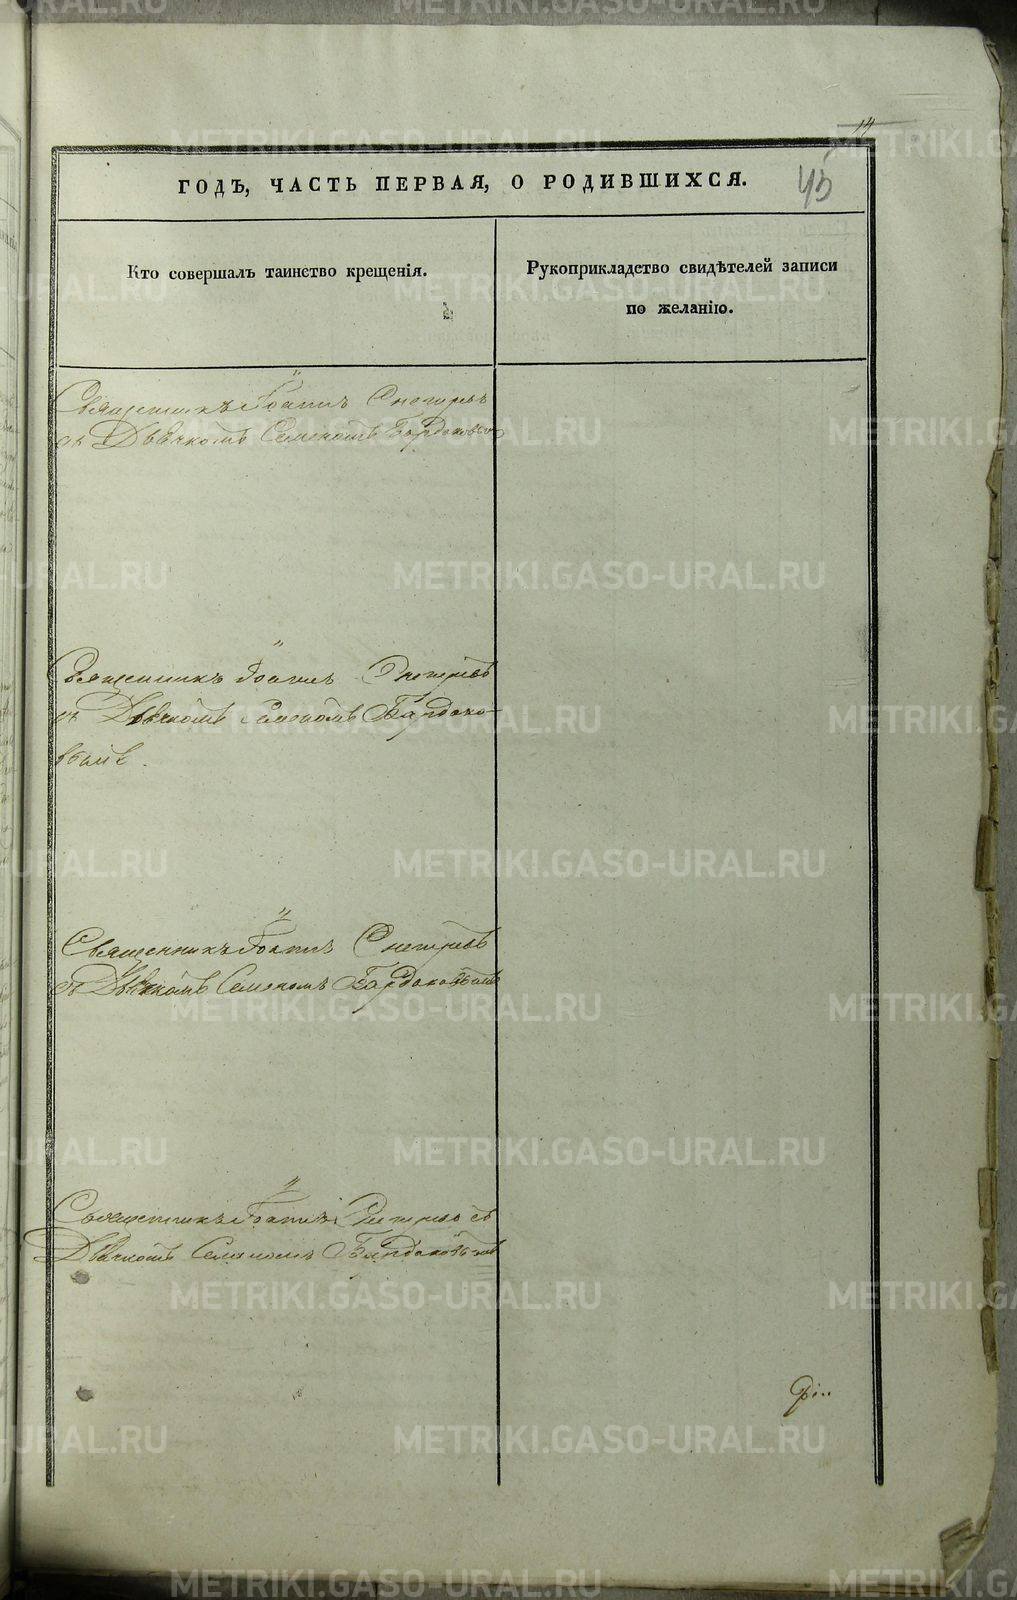 14
ГОДЪ, ЧАСТЬ ПЕРВАЯ, О РОДИВШИХСЯ.
45
Кто совершалъ таинство крещенія.
Рукоприкладство свидѣтелей записи
по желанію.
Священникъ Іоаннъ
съ Дьячкомъ Семеномъ Бардаковымъ
Священникъ Іоаннъ
съ Дьячкомъ Семеномъ Бардако-
вымъ.
Священникъ Іоаннъ
съ Дьячкомъ Семеномъ Бардаковымъ
Священникъ Іоаннъ съ
Дьячкомъ Семеномъ Бардаковымъ
METRIKI.GASO-URAL.RU